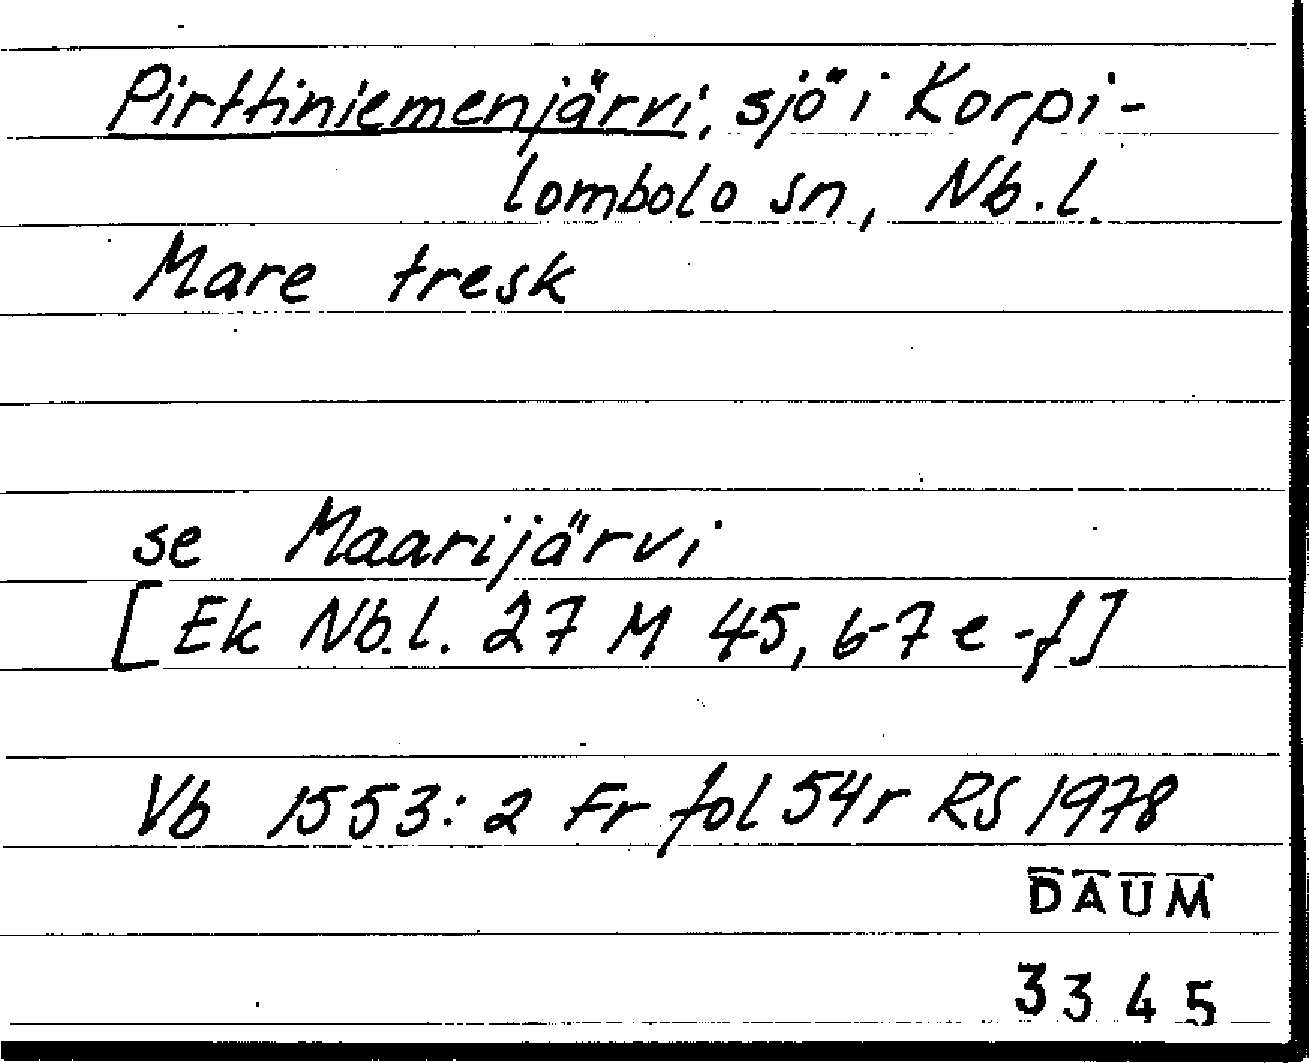 Pirttiniemenjärvi, sjö i Korpi-
lombolo sn, Nb.l.
Mare tresk
se Maarijärvi
[Ek Nb.l. 27 M 45, 6-7 e-f]
Vb 1553:2 Fr fol 54r RS 1978
DAUM
3345